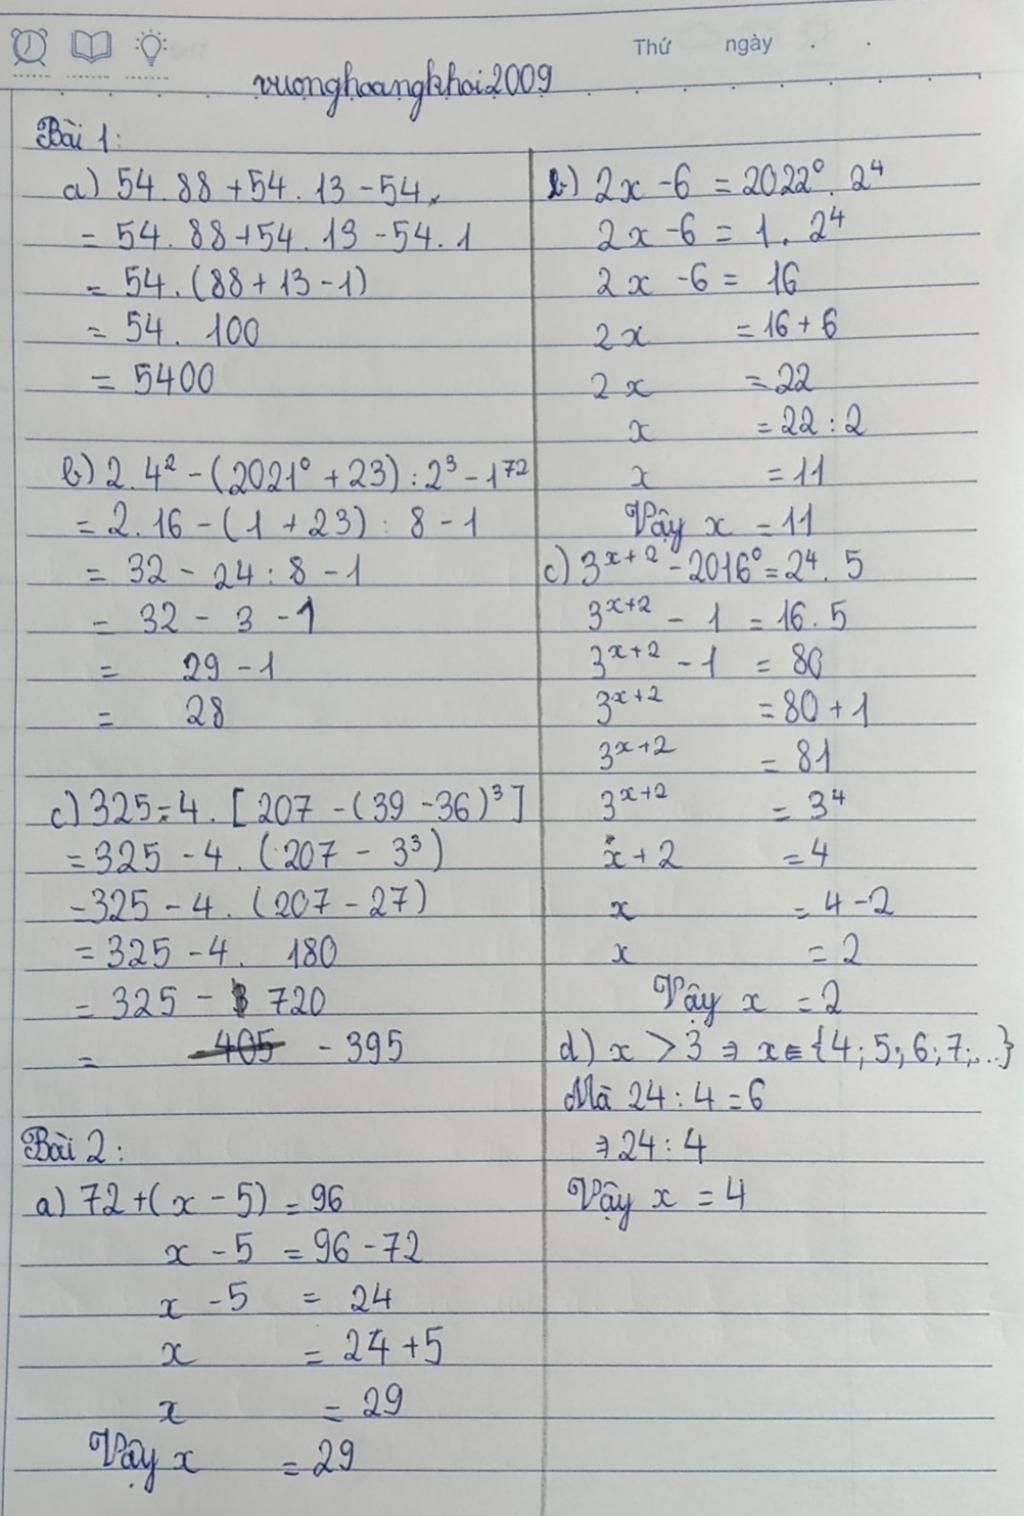 Thứ ngày
vuonghoangkhoi2009
Bài 1:
a) 54.88+54.13-54.
= 54.88+54.13-54.1
= 54.(88+13-1)
= 54. 100
= 5400
b) 2.4² - (2021⁰ + 23) : 2³ - 1⁷²
= 2.16 - (1 + 23) : 8 - 1
= 32 - 24 : 8 - 1
= 32 - 3 - 1
= 29 - 1
= 28
c) 325-4. [207 - (39 - 36)³]
= 325 - 4. (207 - 3³)
= 325 - 4. (207 - 27)
= 325 - 4. 180
= 325 - 720
= - 395
Bài 2:
a) 72+(x - 5) = 96
x - 5 = 96 - 72
x - 5 = 24
x = 24 + 5
x = 29
Vậy x = 29
b) 2x - 6 = 2022⁰. 2⁴
2x - 6 = 1. 2⁴
2x - 6 = 16
2x = 16 + 6
2x = 22
x = 22 : 2
x = 11
Vậy x = 11
c) 3ˣ⁺² - 2016⁰ = 2⁴. 5
3ˣ⁺² - 1 = 16. 5
3ˣ⁺² - 1 = 80
3ˣ⁺² = 80 + 1
3ˣ⁺² = 81
3ˣ⁺² = 3⁴
x + 2 = 4
x = 4 - 2
x = 2
Vậy x = 2
d) x > 3 ⇒ x ∈ {4; 5; 6; 7;...}
Mà 24 : 4 = 6
⇒ 24 : 4
Vậy x = 4